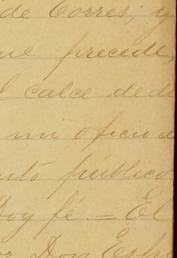 de Torres; y
que precede,
l calce dedi
mi oficio d
ento público
Doy fé.=El
or Don Este